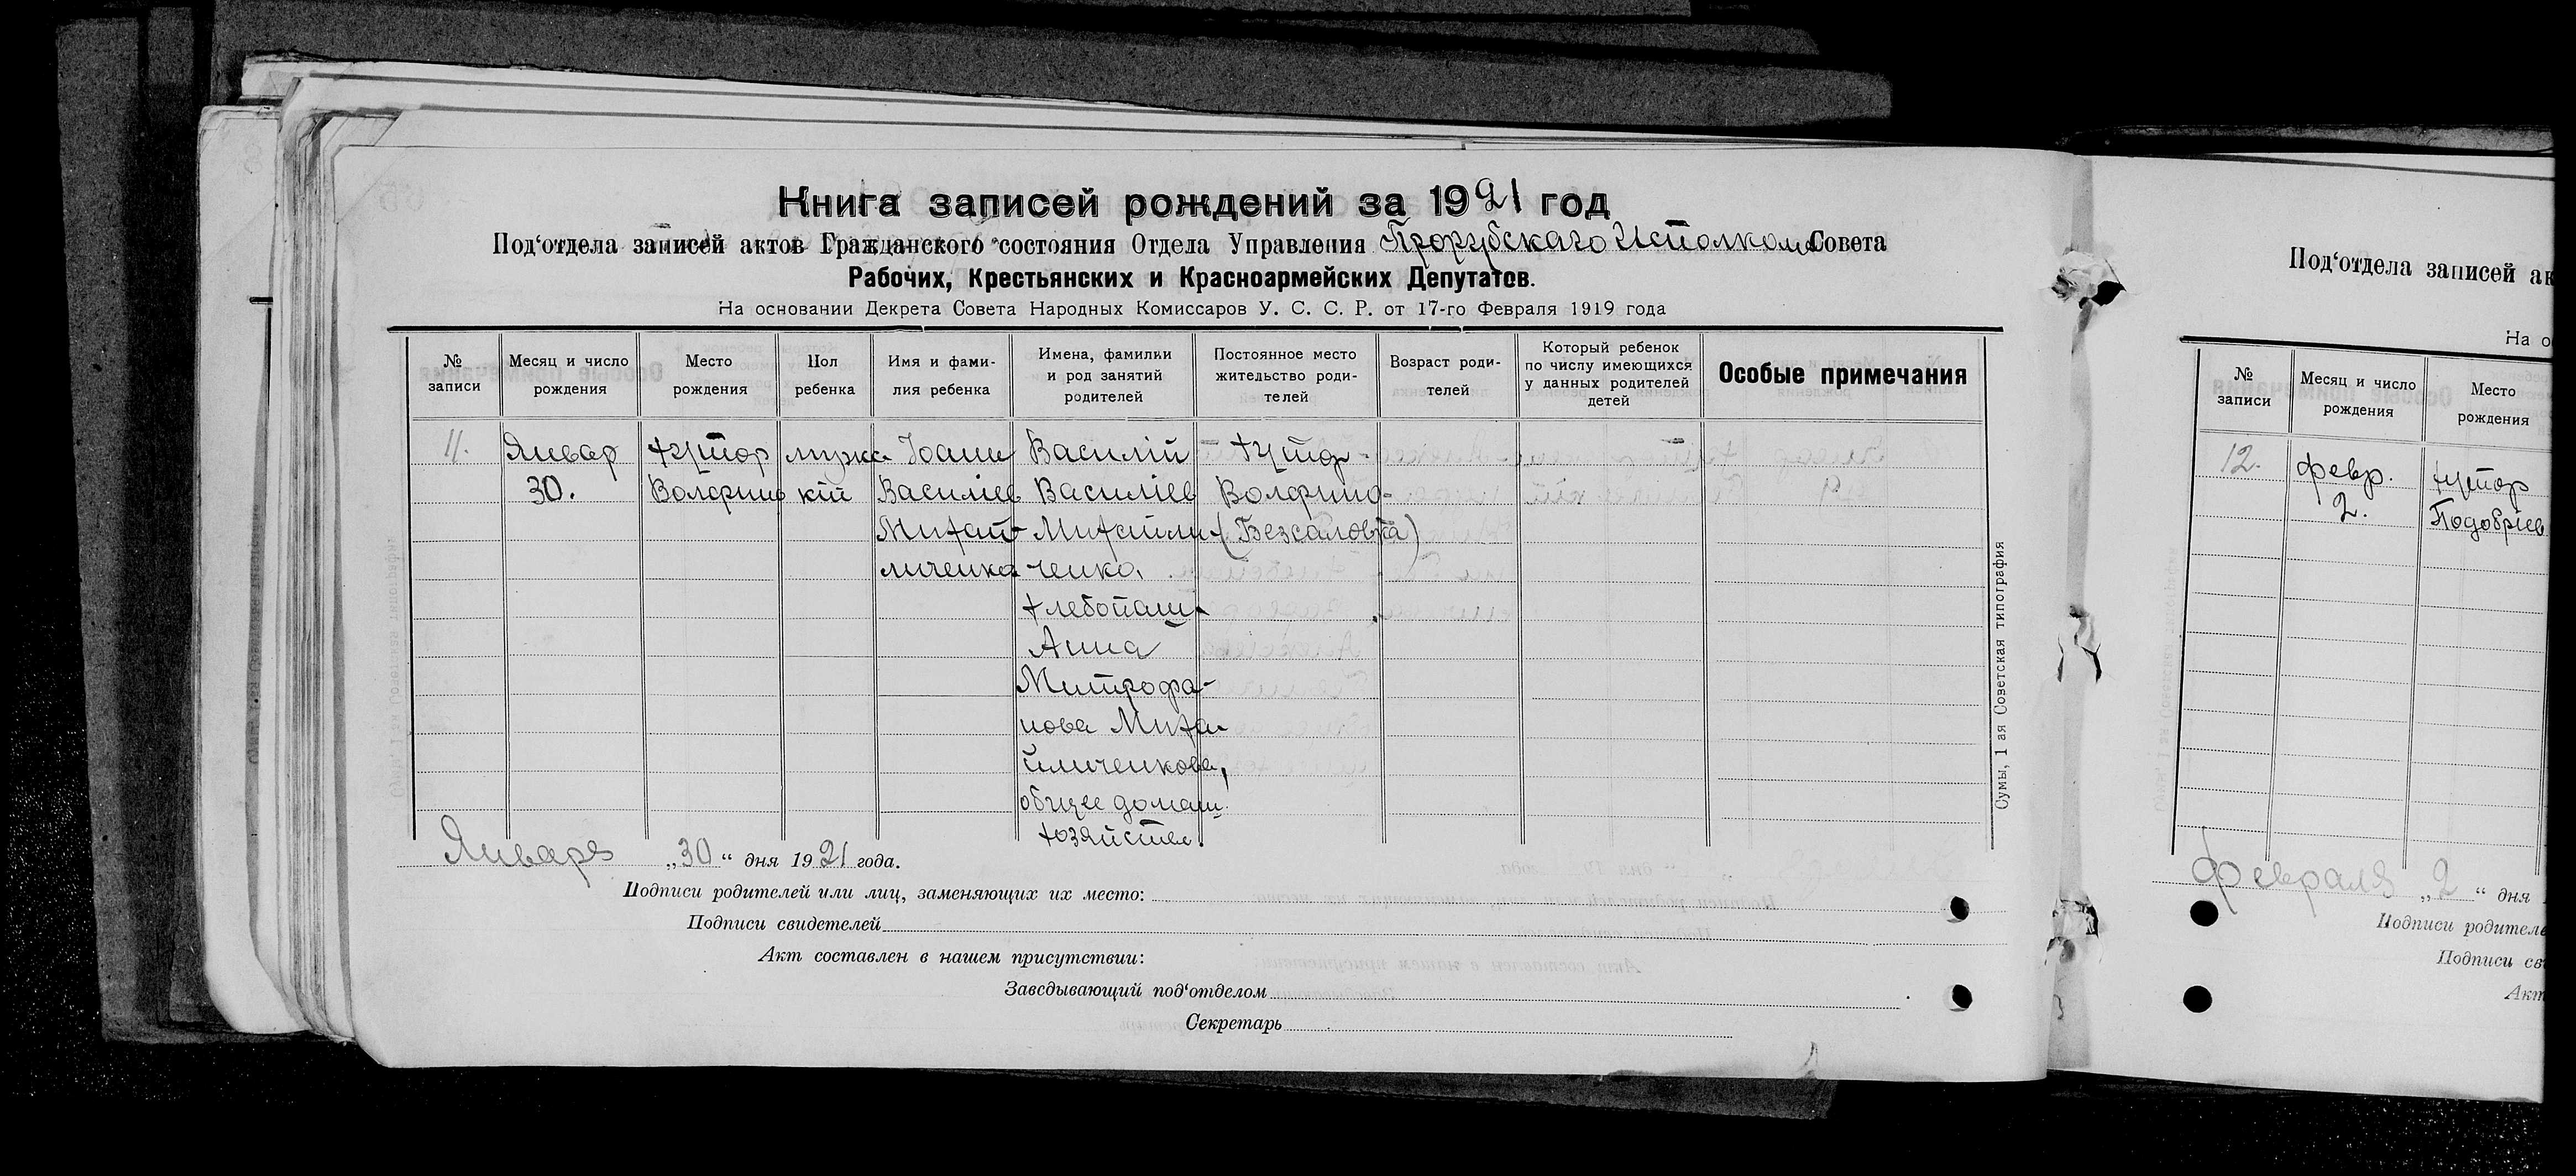 Книга записей рождений за 1921 год
Под‘отдела записей актов Гражданского состояния Отдела Управления Прорубскаго Исполкома Совета
Рабочих, Крестьянских и Красноармейских Депутатов.
На основании Декрета Совета Народных Комиссаров У. С. С. Р. от 17-го Февраля 1919 года
№ записи
Месяц и число рождения
Место рождения
Пол ребенка
Имя и фами-
лия ребенка
Имена, фамилии
и род занятий
родителей
Постоянное место
жительство роди-
телей
Возраст роди-
телей
Который ребенок
по числу имеющихся
у данных родителей
детей
Особые примечания
11.
Январ
30.
хутор
Волфино
мужс
кій
Іоанн
Василіев
Михай-
личенко
Василій
Василіев
Михайли-
ченко,
хлебопаш.
Анна
Митрофа-
нова Миха-
йличенкова,
общее домаш.
хозяйство.
хутор
Волфино-
(Безсаловка)
Января „30“ дня 1921 года.
Подписи родителей или лиц, заменяющих их место:
Подписи свидетелей
Акт составлен в нашем присутствии:
Заведывающий под‘отделом
Секретарь
Сумы, 1 ая Советская типография
Под‘отдела записей ак
На о
№
записи
Месяц и число
рождения
Место
рождения
12.
февр.
2.
хутор
Подобріев
Февраля „2“ дня
Подписи родителе
Подписи св
Акт